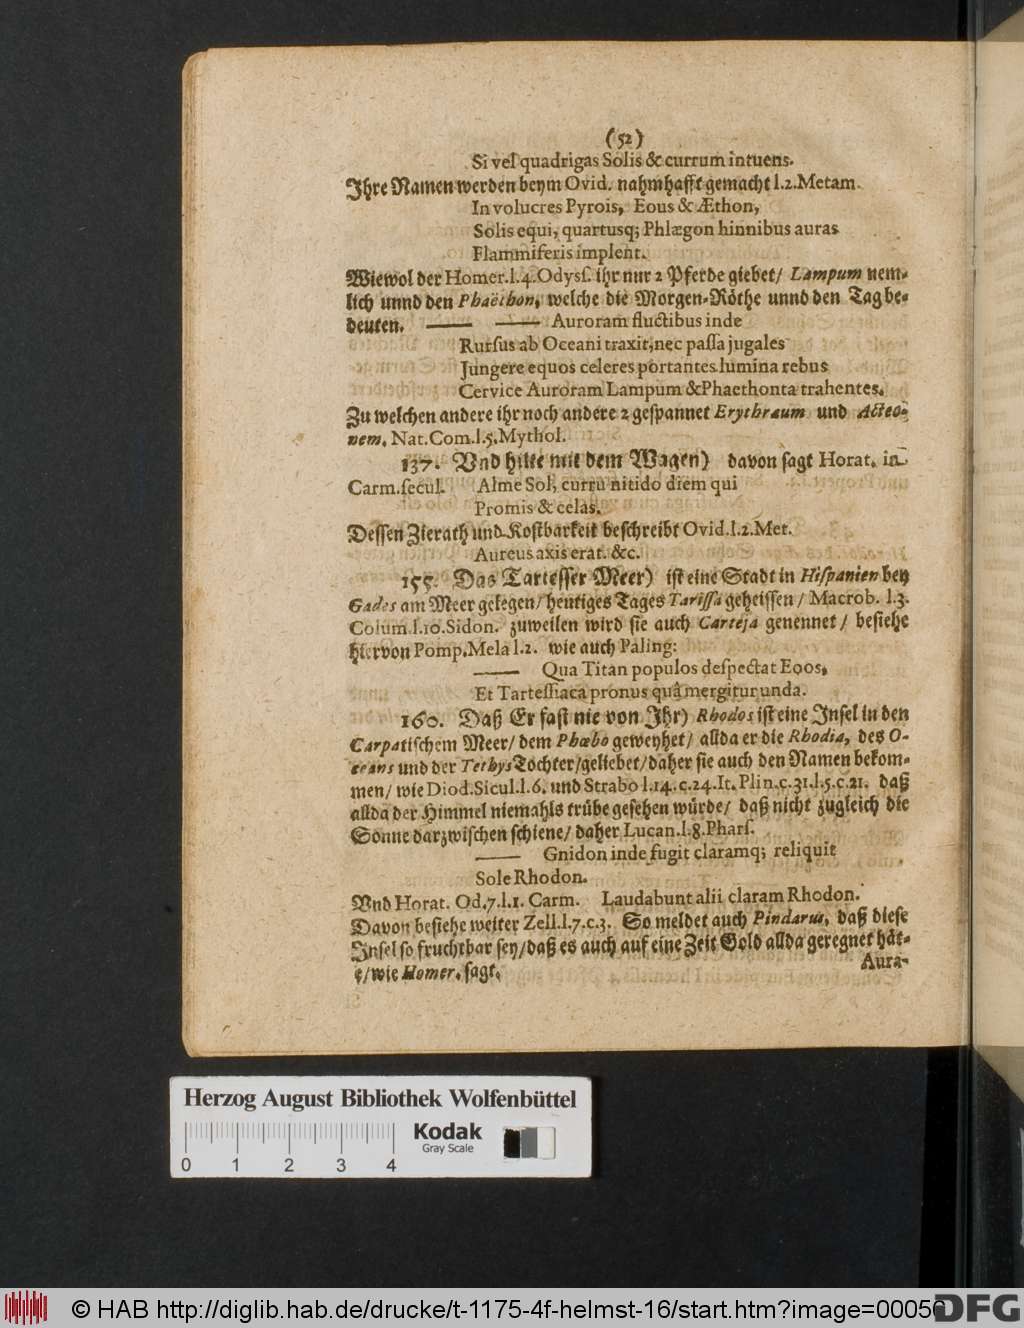 (52)
Si vel quadrigas Solis & currum intuens.
Ihre Namen werden beym Ovid. nahmhafft gemacht l.2.Metam.
In volucres Pyrois, Eous & Æthon,
Solis equi, quartusq; Phlægon hinnibus auras
Flammiferis implent.
Wiewol der Homer.l.4.Odyſſ. ihr nur 2 Pferde giebet/ Lampum nem-
lich unnd den Phaëthon, welche die Morgen-Röthe unnd den Tag be-
deuten. —— —— Auroram fluctibus inde
Rurſus ab Oceani traxit, nec paſſa jugales
Jungere equos celeres portantes lumina rebus
Cervice Auroram Lampum & Phaethonta trahentes.
Zu welchen andere ihr noch andere 2 geſpannet Erythræum und Acteo-
nem. Nat.Com.l.5.Mythol.
137. Vnd hilte mit dem Wagen) davon ſagt Horat. in
Carm.ſecul. Alme Sol, curru nitido diem qui
Promis & celas.
Deſſen Zierath und Koſtbarkeit beſchreibt Ovid.l.2.Met.
Aureus axis erat. &c.
155. Das Tarteſſer Meer) iſt eine Stadt in Hiſpanien bey
Gades am Meer gelegen/ heutiges Tages Tariſſa geheiſſen / Macrob. l.3.
Colum.l.10.Sidon. zuweilen wird ſie auch Carteja genennet / beſiehe
hiervon Pomp.Mela l.2. wie auch Paling:
—— Qua Titan populos deſpectat Eoos,
Et Tarteſſiaca pronus quâ mergitur unda.
160. Daß Er faſt nie von Ihr) Rhodos iſt eine Inſel in den
Carpatiſchem Meer/ dem Phœbo geweyhet/ allda er die Rhodia, des O-
ceans und der Tethys Tochter/ geliebet/ daher ſie auch den Namen bekom-
men/ wie Diod.Sicul.l.6. und Strabo l.14.c.24.It.Plin.c.31.l.5.c.21. daß
allda der Himmel niemahls trübe geſehen würde/ daß nicht zugleich die
Sonne darzwiſchen ſchiene/ daher Lucan.l.8.Pharſ.
—— Gnidon inde fugit claramq; reliquit
Sole Rhodon.
Vnd Horat. Od.7.l.1. Carm. Laudabunt alii claram Rhodon.
Davon beſiehe weiter Zell.l.7.c.3. So meldet auch Pindarus, daß dieſe
Inſel ſo fruchtbar ſey/ daß es auch auf eine Zeit Gold allda geregnet hät-
e/ wie Homer. ſagt.
Aura-
Herzog August Bibliothek Wolfenbüttel
Kodak
Gray Scale
0 1 2 3 4
© HAB http://diglib.hab.de/drucke/t-1175-4f-helmst-16/start.htm?image=00050
DFG